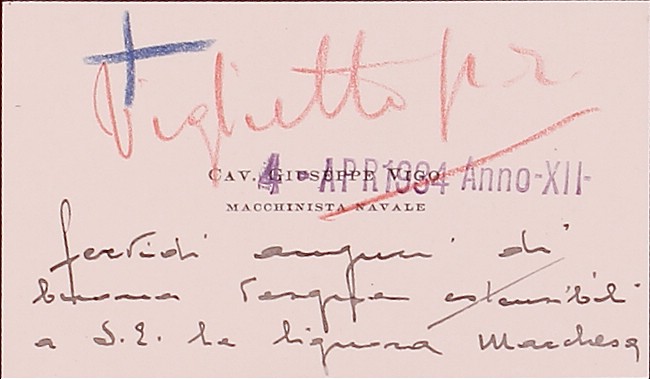 Viglietto p. r.
CAV. GIUSEPPE VIGO
4 - APR 1934 Anno-XII-
MACCHINISTA NAVALE
fervidi auguri di
buona Pasqua estensibili
a S. E. la Signora Marchesa